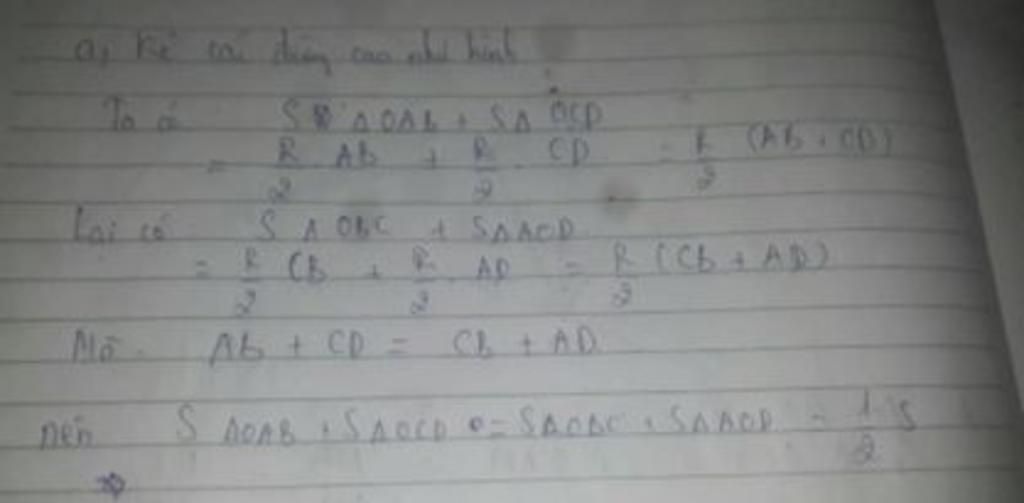 a, Kẻ các đường cao như hình
Ta có S ΔOAB + SΔ OCD
= R/2 AB + R/2 . CD = R/2 (AB + CD)
Lại có S Δ OBC + SΔAOD
= R/2 CB + R/2 . AD = R/2 (CB + AD)
Mà AB + CD = CB + AD
nên S ΔOAB + SΔOCD = SΔOBC + SΔAOD = 1/2 S
⇒